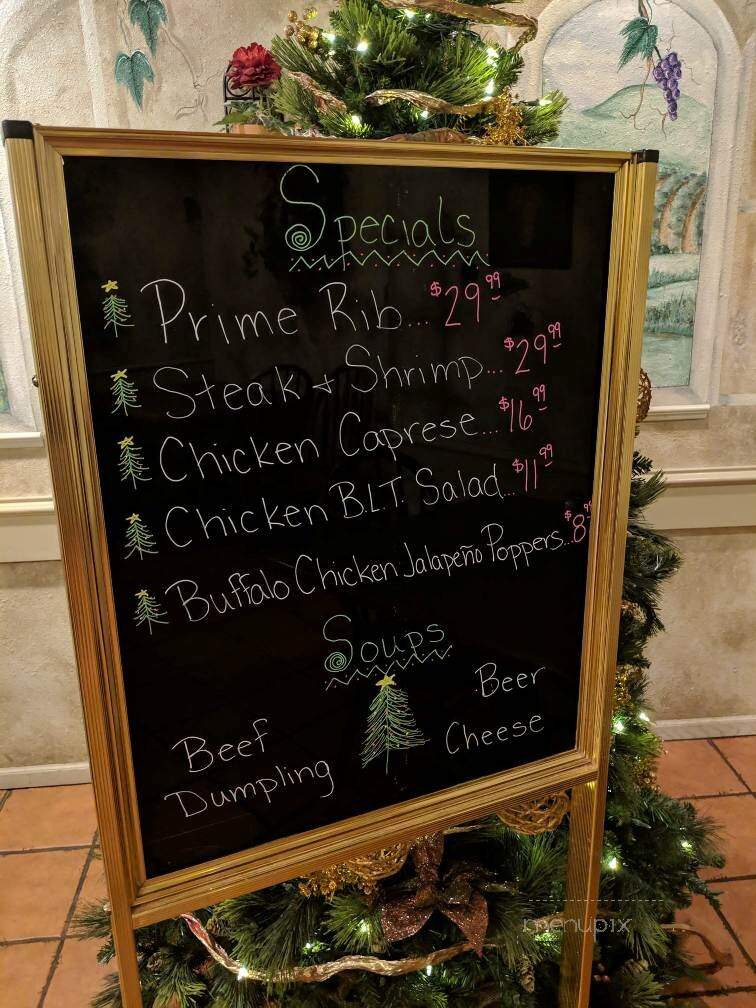 Specials
Prime Rib... $29.99
Steak + Shrimp... $29.99
Chicken Caprese... $16.99
Chicken B.L.T. Salad... $11.99
Buffalo Chicken Jalapeño Poppers... $8.99
Soups
Beef Dumpling
Beer Cheese
menupix